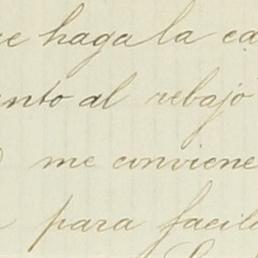 e haga la ca
nto al rebajo
me conviene
para facili